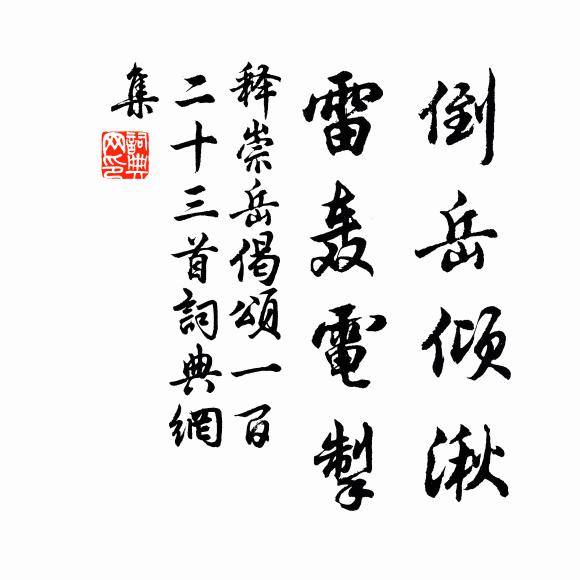 倒岳倾湫
雷轰電掣
释崇岳偈頌一百
二十三首詞典網
集
詞典網印